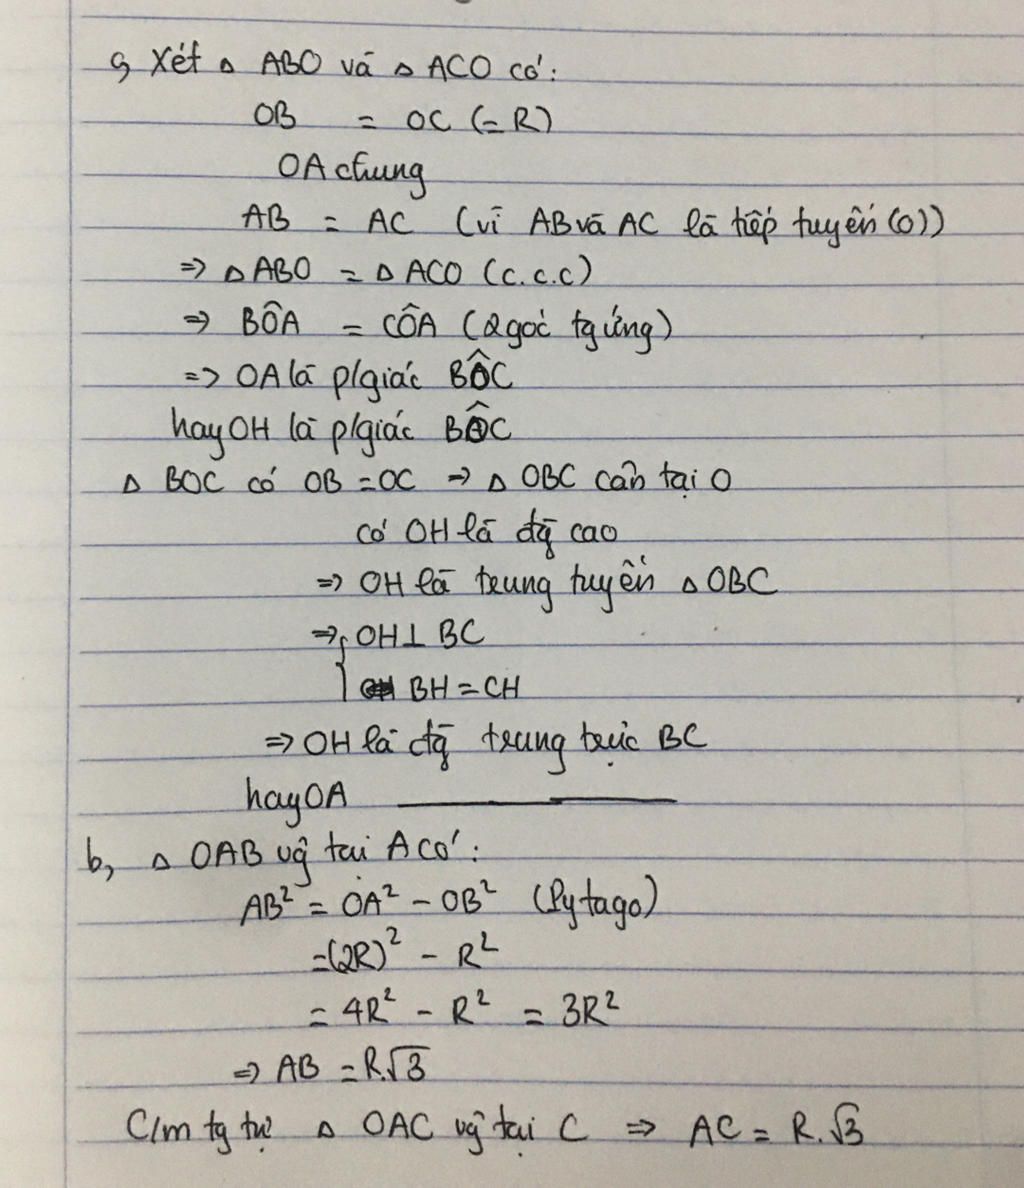 a, Xét Δ ABO và Δ ACO có:
OB = OC (= R)
OA chung
AB = AC (vì AB và AC là tiếp tuyến (O))
=> Δ ABO = Δ ACO (c.c.c)
=> BÔA = CÔA (2 góc tg ứng)
=> OA là p/giác BÔC
hay OH là p/giác BÔC
Δ BOC có OB = OC => Δ OBC cân tại O
có OH là đg̀ cao
=> OH là trung tuyến Δ OBC
=> { OH ⊥ BC
BH = CH
=> OH là đg̀ trung trực BC
hay OA ————
b, Δ OAB vĝ tại A có:
AB² = OA² - OB² (Pytago)
= (2R)² - R²
= 4R² - R² = 3R²
=> AB = R.√3
C/m tg tự Δ OAC vĝ tại C => AC = R.√3